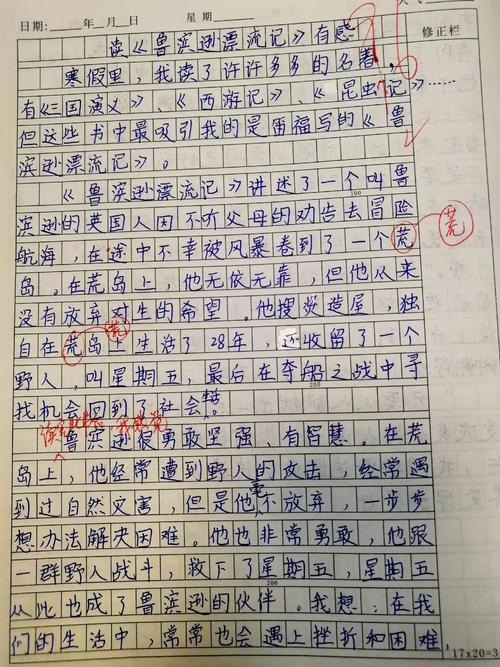 日期：　　年　月　日　　星期
修正栏
读《鲁滨逊漂流记》有感
寒假里，我读了许许多多的名著，
有《三国演义》、《西游记》、《昆虫记》……
但这些书中最吸引我的是笛福写的《鲁
滨逊漂流记》。
《鲁滨逊漂流记》讲述了一个叫鲁
100
滨逊的英国人因不听父母的劝告去冒险
航海，在途中不幸被风暴卷到了一个荒 荒
岛。在荒岛上，他无依无靠，但他从来
没有放弃对生的希望。他搜
造屋，独
自在荒岛上生活了28年，还收留了一个
荒
野人，叫星期五，最后在夺船之战中寻
200
找机会回到了社会。
鲁滨逊很勇敢坚强，有智慧。在荒
岛上，他经常遭到野人的攻击，经常遇
到过自然灾害，但是他毫不放弃，一步步
想办法解决困难。他也非常勇敢，他跟
一群野人战斗，救下了星期五，星期五
300
从此也成了鲁滨逊的伙伴。我想：在我
们的生活中，常常也会遇上挫折和困难，
17×20=3